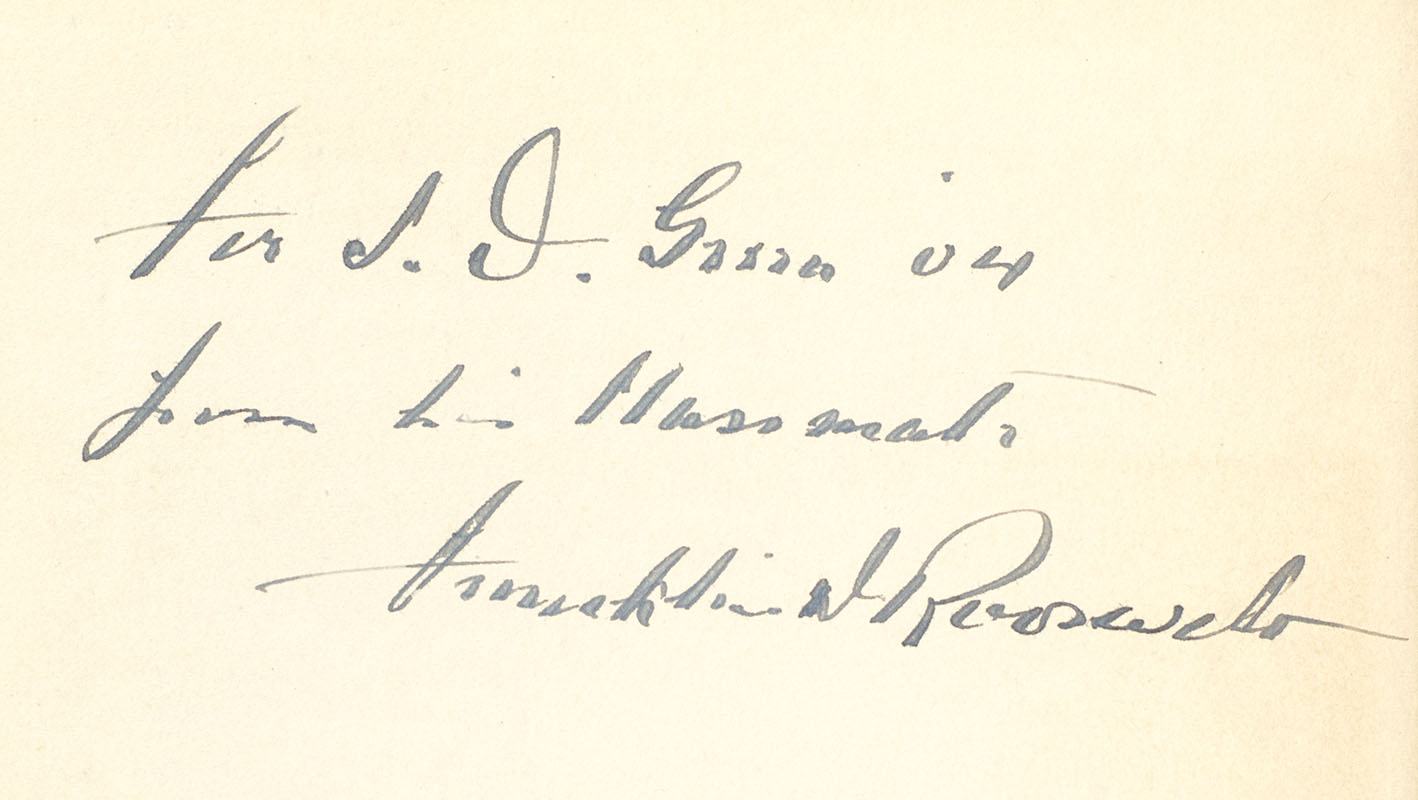 For S. D. Green ver
from his Classmate
Franklin D Roosevelt